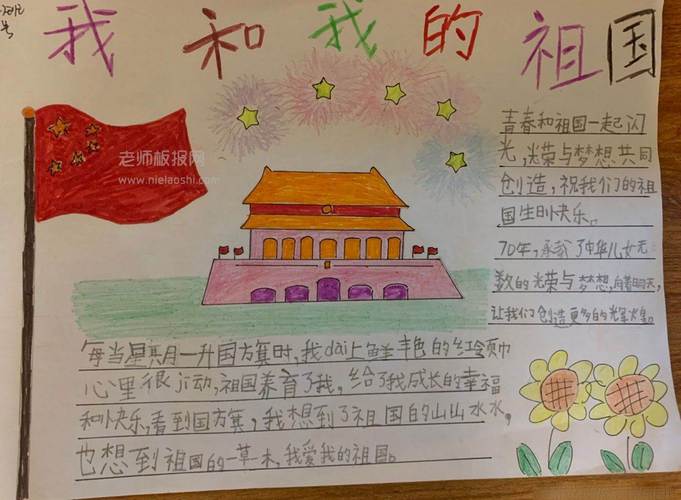 我和我的祖国
老师板报网
www.nielaoshi.com
青春和祖国一起闪
光,光荣与梦想共同
创造,祝我们的祖
国生日快乐。
70年,承载了中华儿女无
数的光荣与梦想,向着明天,
让我们创造更多的辉煌。
每当星期一升国方旗时,我dai上鲜丰色的红领巾
心里很ji动,祖国养育了我,给了我成长的幸福
和快乐,看到国方旗,我想到了祖国的山山水水,
也想到祖国的一草木,我爱我的祖国。